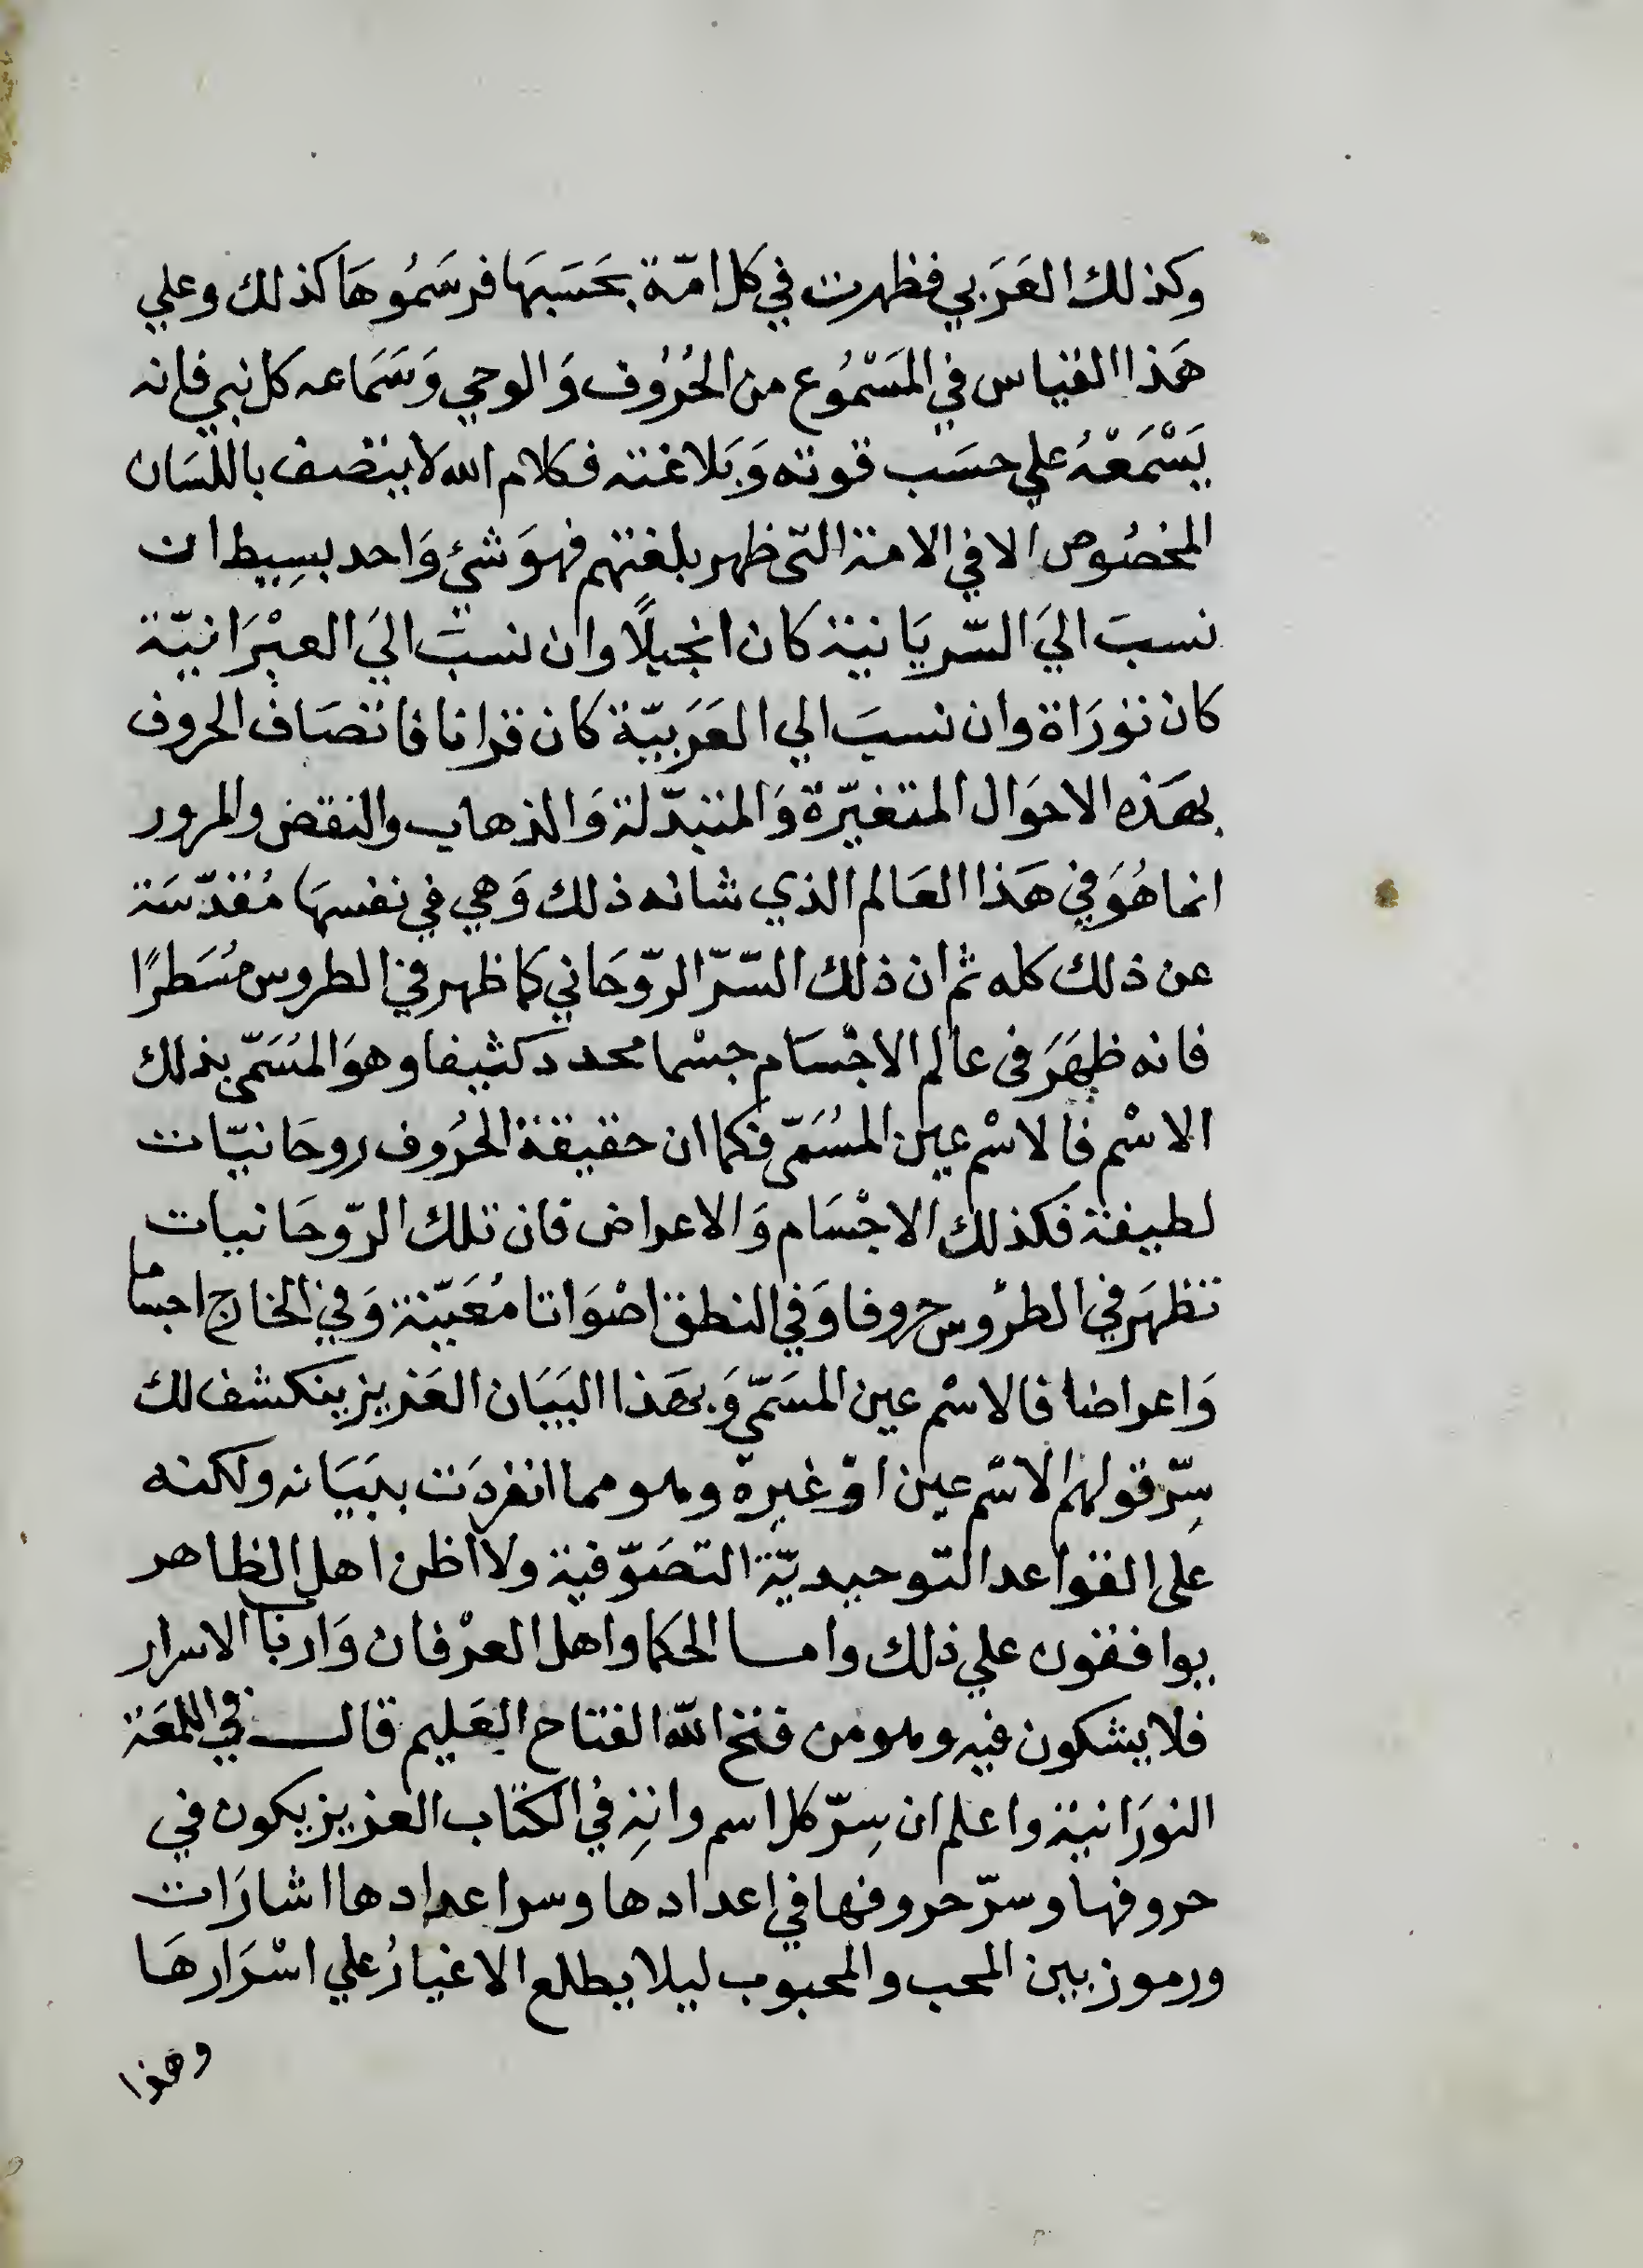 وكذلك العَرَبي فظهرت في كل امّة بحَسَبَهَا فرسَمُوهَا كذلك وعلي
هَذا القياس في المَسْمُوع من الحُرُوف وَالوحي وَسَمَاعه كل نبي فانه
يَسْمَعْهُ علي حسَب قوته وَبَلاغته فكلام الله لا يتصف باللسَان
المخصُوص الا في الامة التى ظهر بلغتهم فهوَ شئ وَاحد بسِيط ان
نسبَ اليَ السّريَانية كان انجيلًا وان نسبَ اليَ العبْرَانيّة
كان تورَاة وان نسبَ الي العَرَبيّة كان قرانا فاتصَاف الحروف
بهَذه الاحوَال المتغيّرة وَالمتبدّلة وَالذهاب والنقض والمرور
انما هُوَ في هَذا العَالم الذي شانه ذلك وَهي في نفسهَا مُقدّسَة
عن ذلك كله ثم ان ذلك السّرّ الرّوحَاني كما ظهر في الطروس مُسَطرًا
فانه ظهَرَ فى عالم الاجْسَام جسْما محدد كثيفا وهوَ المُسَمّى بذلك
الاسْم فالاسْم عين المُسَمّى فكما ان حقيقة الحرُوف روحَانيّات
لطيفة فكذلك الاجْسَام وَالاعراض فان تلك الرّوحَانيات
تظهَر في الطرُوس حروفا وَفي النطق اصْوَاتا مُعَيّنة وَفي الخارج اجساما
وَاعراضا فالاسْم عين المسَمّى وَبهَذا البَيَان العَزيز ينكشف لك
سِرّ قولهم الاسْم عين اوْ غيره وهو مما انفردَت ببَيَانه ولكنه
على القواعد التوحيديّة التصَوّفية ولا اظن اهل الظاهر
يوافقون علي ذلك واما الحكما واهل العرْفان وَاربَا الاسرار
فلا يشكون فيه وهو من فتح الله الفتاح العَليم قال في اللمعَة
النورَانية واعلم ان سِرّ كل اسم وانهِ في الكتاب العزيز يكون في
حروفها وسرّ حروفها في اعدادها وسر اعدادها اشارَات
ورموز بين المحب والمحبوب ليلا يطلع الاغيارُ علي اسْرَارهَا
وهذا